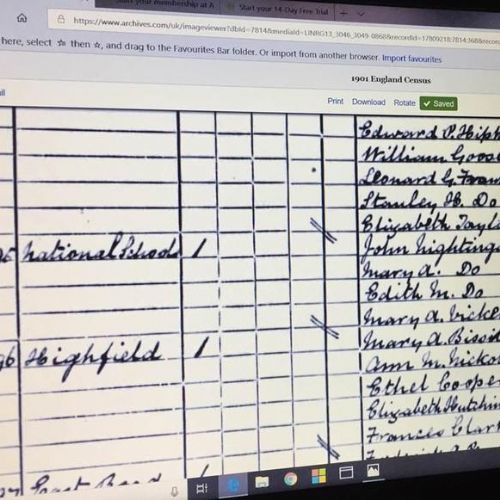 Start your membership at A
Start your 14-Day Free Trial
https://www.archives.com/uk/imageviewer?dbId=7814&mediaId=LINRG13_3046_3049-0868&recordId=17809218:7814:368&recor
here, select ☆ then ☆, and drag to the Favourites Bar folder. Or import from another browser. Import favourites
1901 England Census
Print Download Rotate ✓ Saved
Edward P.
William Goos
Leonard G. Fran
Stanley H. Do
Elizabeth Tayl
95 National School 1 John Nightinga
Mary A. Do
Edith M. Do
Mary A. Vicke
Mary A.
96 Highfield 1 Ann M. Nickol
Ethel Coope
Elizabeth Hutchin
Frances Clark